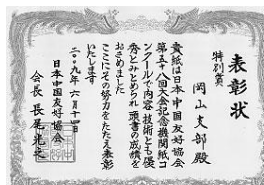 表彰状
特別賞
岡山支部殿
貴紙は日本中国友好協会
第五十八回大会記念機関紙コ
ンクールで内容、技術とも優
秀とみとめられ頭書の成績を
おさめました
ここにその努力をたたえ表彰
いたします
二〇〇九年六月十四日
日本中国友好協会
会長 長尾光之